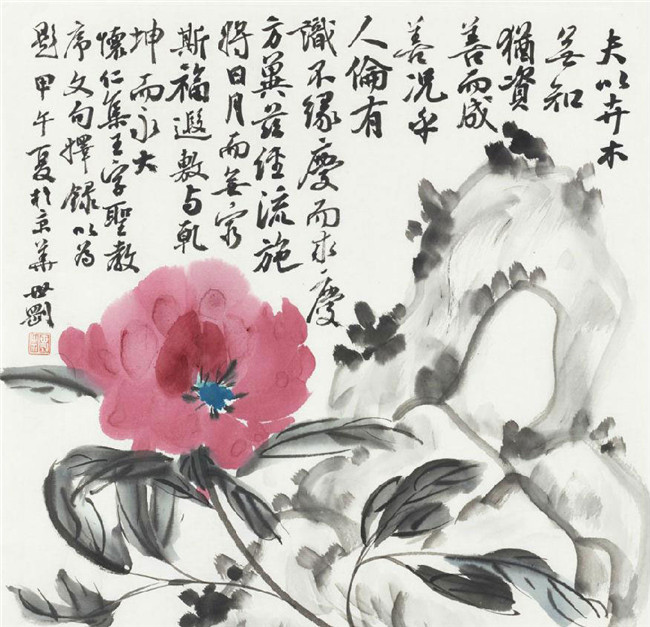 夫以卉木
無知
猶資
善而成
善况乎
人倫有
識不緣慶而求慶
方冀茲經流施
將日月而無窮
斯福遐敷与乾
坤而永大
懷仁集王字聖教
序文句擇錄以為
題甲午夏於京華世剛